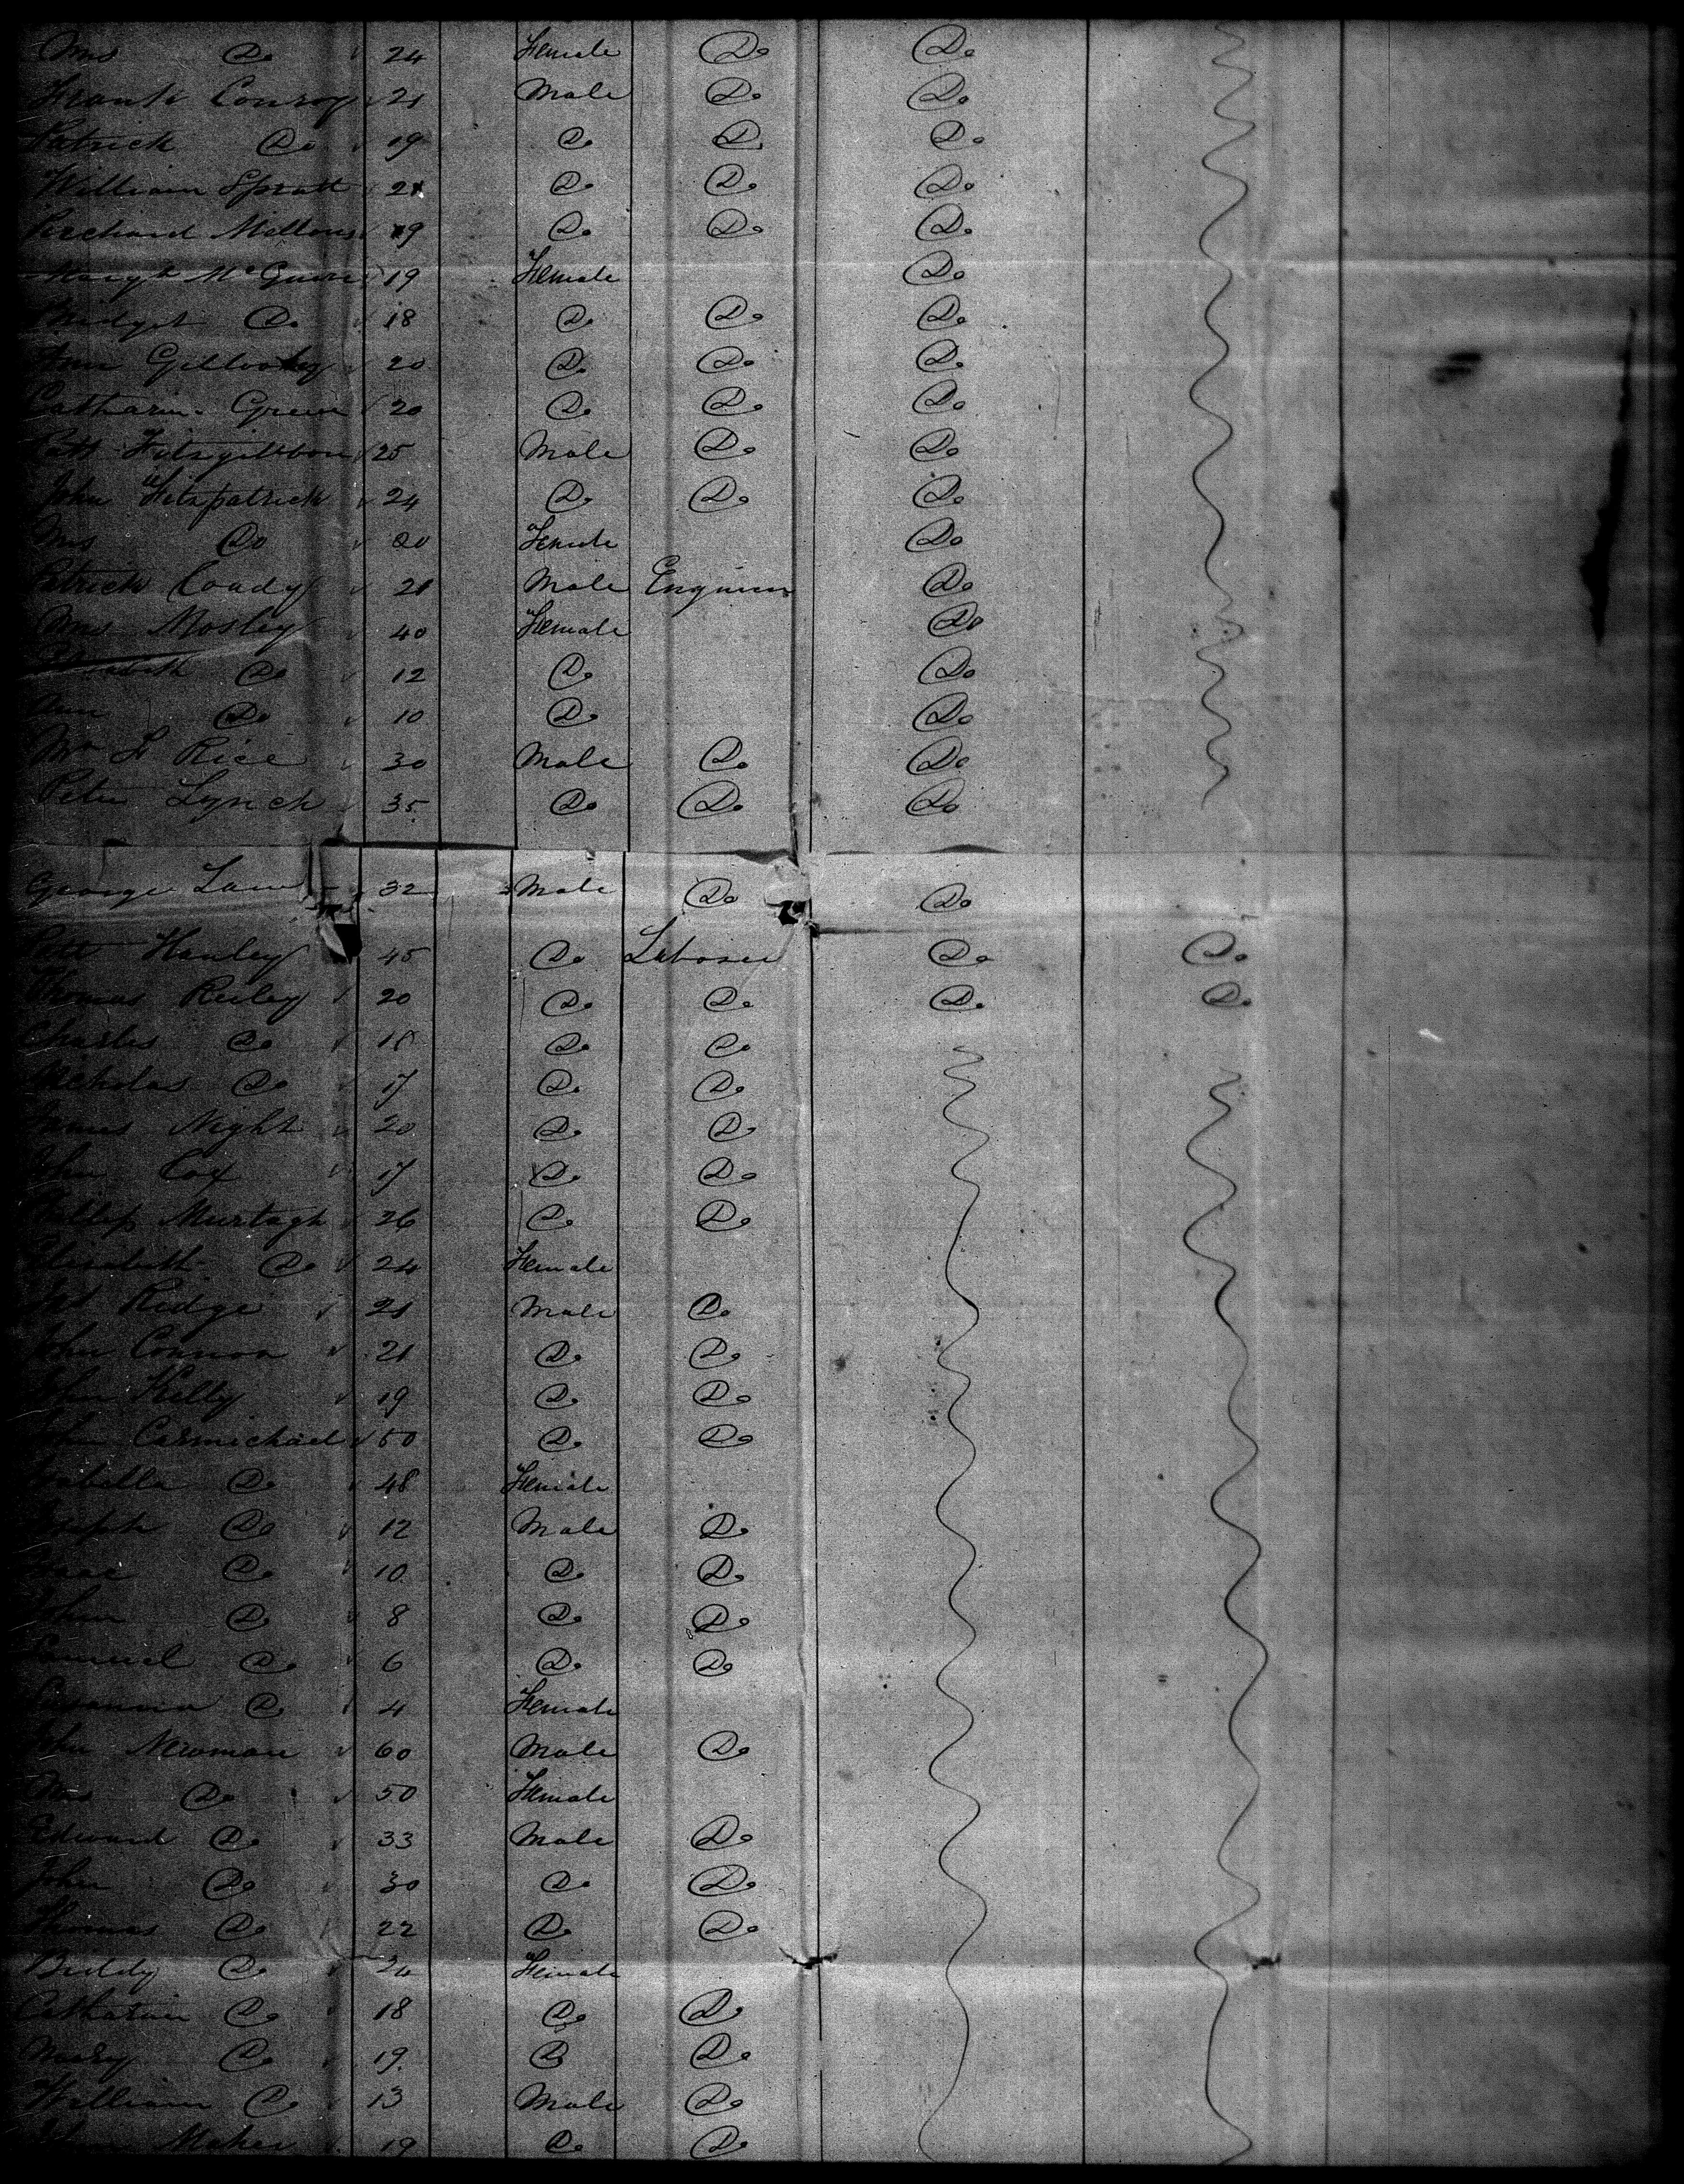 Mrs Do 24 Female Do Do
Frank Conroy 21 Male Do Do
Patrick Do 19 Do Do Do
William Spratt 21 Do Do Do
Richard Mellons 19 Do Do Do
Margt McGuire 19 Female Do
Bridget Do 18 Do Do Do
Ann Gillooly 20 Do Do Do
Catharin Green 20 Do Do Do
Patt Fitsgibbon 25 Male Do Do
John Fitzpatrick 24 Do Do Do
Mrs Do 20 Female Do
Patrick Coady 21 Male Engineer Do
Mrs Mosley 40 Female Do
Elizabeth Do 12 Do Do
Ann Do 10 Do Do
Mr F Rice 30 Male Do Do
Peter Lynch 35 Do Do Do
George Law 32 Male Do Do
Patt Hanley 45 Do Laborer Do Do
Thomas Reiley 20 Do Do Do Do
Charles Do 18 Do Do
Nicholas Do 17 Do Do
James Night 20 Do Do
John Cox 17 Do Do
Phillip Murtagh 26 Do Do
Elizabeth Do 24 Female
Ridge 21 Male Do
John Connor 21 Do Do
John Kelly 19 Do Do
John Carmichael 50 Do Do
Isabella Do 48 Female
Joseph Do 12 Male Do
Isaac Do 10 Do Do
John Do 8 Do Do
Samuel Do 6 Do Do
Susanna Do 4 Female
John Newman 60 Male Do
Mrs Do 50 Female
Edward Do 33 Male Do
John Do 30 Do Do
Thomas Do 22 Do Do
Biddy Do 24 Female
Catharin Do 18 Do Do
Mary Do 19 Do Do
William Do 13 Male Do
Maher 19 Do Do